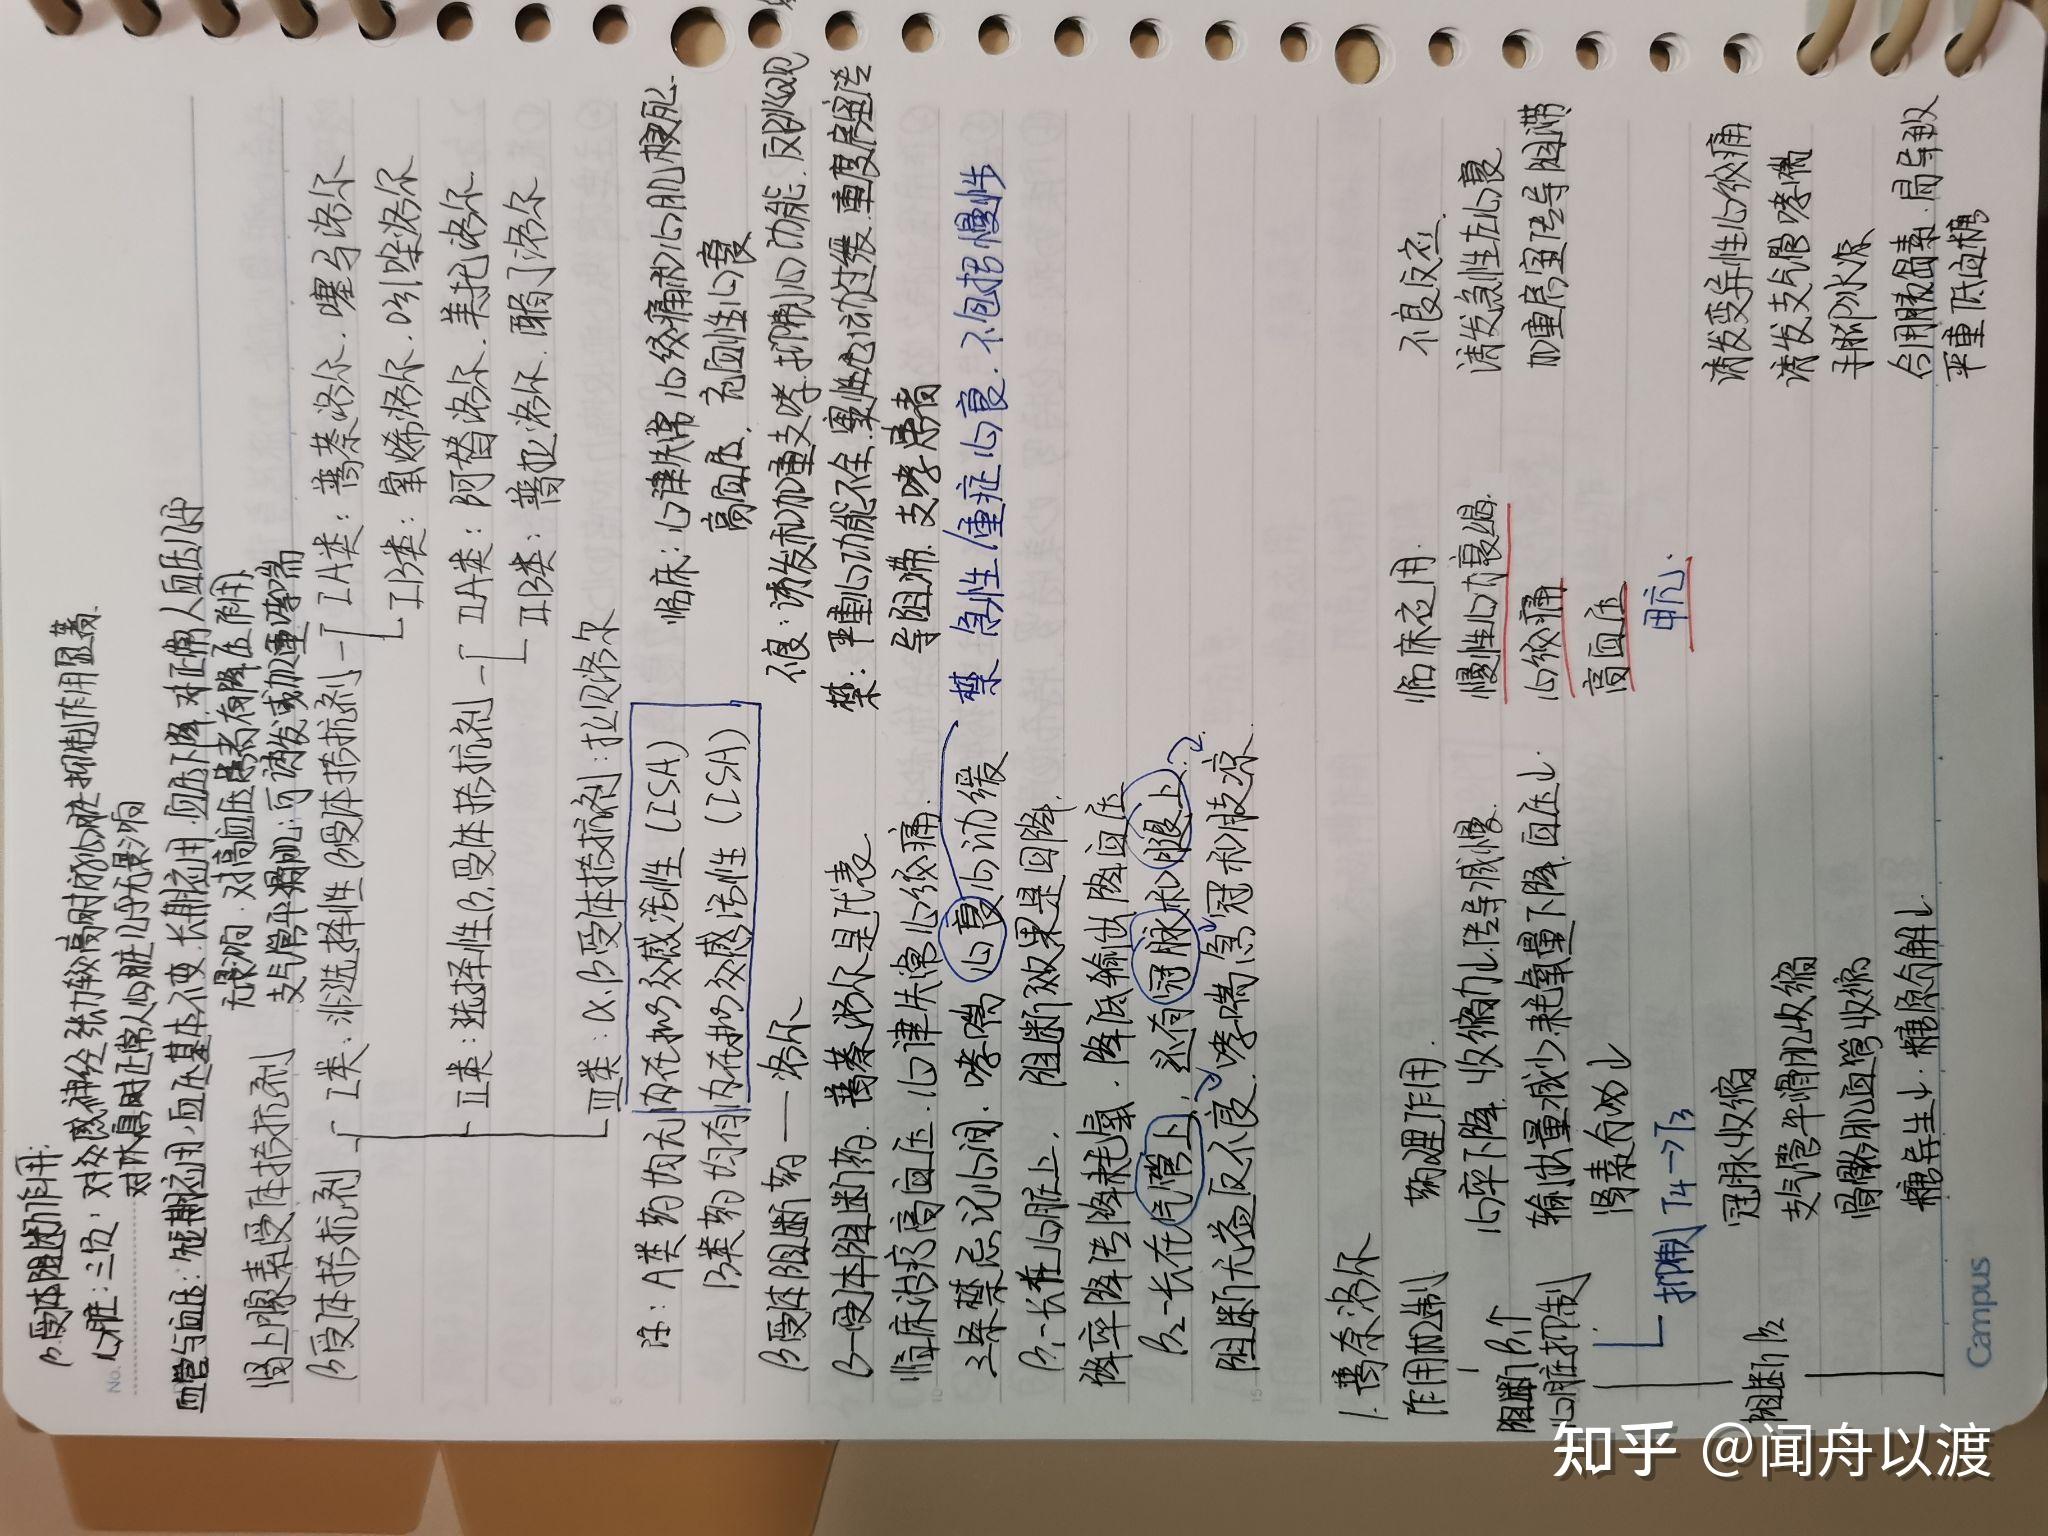 β受体阻断作用:
No.
心脏:三负:对交感神经张力较高时的心脏抑制作用显著.
对休息时正常人心脏几乎无影响
血管与血压:短期应用,血压基本不变.长期应用,血压下降.对正常人血压几乎
无影响.对高血压患者有降压作用
支气管平滑肌:可诱发或加重哮喘
肾上腺素受体拮抗剂
β受体拮抗剂 Ⅰ类:非选择性β受体拮抗剂 ⅠA类:普萘洛尔.噻吗洛尔
ⅠB类:氧烯洛尔.吲哚洛尔
Ⅱ类:选择性β1受体拮抗剂 ⅡA类:阿替洛尔.美托洛尔
ⅡB类:普拉洛尔.醋丁洛尔
Ⅲ类:α.β受体拮抗剂:拉贝洛尔
注:A类药均无内在拟交感活性(ISA)
B类药均有内在拟交感活性(ISA)
临床:心律失常心绞痛和心肌梗死.
高血压.充血性心衰
β受体阻断药——洛尔
不良:诱发和加重支哮.抑制心功能.反跳现
β-受体阻断药.普萘洛尔是代表
禁:严重心功能不全.窦性心动过缓.重度房室传
导阻滞.支哮患者
临床治疗高血压.心律失常心绞痛.
三条禁忌记心间.哮喘心衰心动缓
禁 急性/重症心衰.不包括慢性
β1-长在心脏上.阻断效果是四降.
降率降传降耗氧.降低输出降血压
β2-长在气管上.还有冠脉和腿上.
阻断无益反不良.哮喘急冠和肢凉.
1.普奈洛尔
作用机制 药理作用. 临床应用. 不良反应.
阻断β1 心率下降.收缩力↓.传导减慢. 慢性心力衰竭. 诱发急性左心衰
心脏抑制 输出量减少.耗氧量下降.血压↓. 心绞痛 加重房室传导阻滞
肾素分泌↓ 高血压
抑制T4→T3 甲亢.
阻断β2 冠脉收缩 诱发变异性心绞痛
支气管平滑肌收缩 诱发支气管哮喘
骨骼肌血管收缩 手脚冰凉
糖异生↓.糖原分解↓ 合用胰岛素.易导致
严重低血糖
Campus
知乎 @闻舟以渡